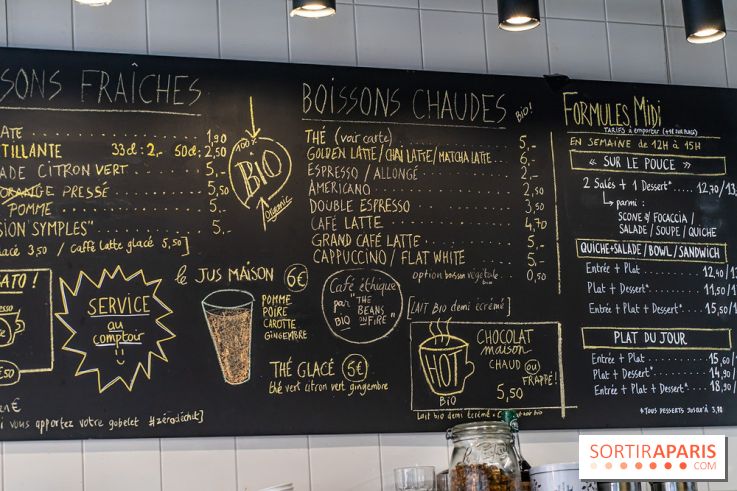 SONS FRAÎCHES
ATE 1,90
TILLANTE 33cl: 2,- 50cl: 2,50
ADE CITRON VERT 5,-
ORANGE PRESSÉ 5,50
POMME 5,-
SION SYMPLES" 5,-
lacé 3,50 / Caffè Latte glacé 5,50]
100% BIO
organic
ATO!
SERVICE
au
comptoir
le JUS MAISON 6€
POMME
POIRE
CAROTTE
GINGEMBRE
THÉ GLACÉ 5€
thé vert citron vert gingembre
si vous apportez votre gobelet #zérodéchet]
BOISSONS CHAUDES
BIO!
THÉ (voir carte) 5,-
GOLDEN LATTE / CHAÏ LATTE / MATCHA LATTE 6,-
ESPRESSO / ALLONGÉ 2,-
AMERICANO 2,50
DOUBLE ESPRESSO 3,50
CAFÉ LATTE 4,70
GRAND CAFÉ LATTE 5,-
CAPPUCCINO / FLAT WHITE 5,-
option boisson végétale 0,50
Café éthique
par "THE
BEANS
ON FIRE"
BIO
[LAIT BIO demi écrémé]
HOT
BIO
CHOCOLAT
maison
CHAUD ou
FRAPPÉ!
5,50
FORMULES MIDI
TARIFS à emporter
EN SEMAINE de 12H à 15H
« SUR LE POUCE »
2 Salés + 1 Dessert* 12,70/13
parmi :
SCONE / FOCACCIA /
SALADE / SOUPE / QUICHE
QUICHE+SALADE/BOWL/SANDWICH
Entrée + Plat 12,40/13
Plat + Dessert* 11,50/1
Entrée + Plat + Dessert* 15,50/1
PLAT DU JOUR
Entrée + Plat 15,60/
Plat + Dessert* 14,90/
Entrée + Plat + Dessert* 18,90/
*TOUS DESSERTS JUSQU'À 3,90
SORTIRAPARIS
.COM